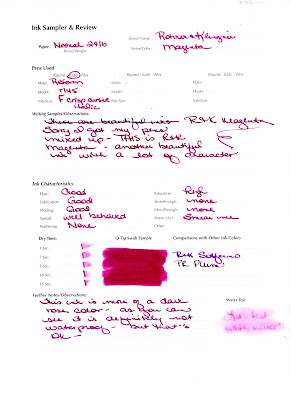 Ink Sampler & Review
Brand Name: Rohrer & Klingner
Paper: Neenah 24 lb
Brand/Weight
Series/Color: Magenta
Pens Used
Round - Italic - Flex
Round - Italic - Flex
Round - Italic - Flex
Make:
Make:
Make:
Model:
Model:
Model:
Nib/Size: F
Nib/Size:
Nib/Size:
Italic
Writing Samples/Observations:
These are beautiful inks R&K Magenta
Sorry I got my pens
mixed up - THIS is R&K
Magenta - another beautiful
ink with a lot of character
Ink Characteristics
Flow: Good
Saturation: High
Lubrication: Good
Showthrough: none
Shading: Good
Bleedthrough: none
Spread: well behaved
Smear (dry): Smear me
Feathering: None
Other:
Dry Time:
Q-Tip Swab Sample
Comparisons with Other Ink Colors:
1 Sec.
3 Sec.
R&K Solferino
5 Sec.
PR Plum
10 Sec.
15 Sec.
Further Notes/Observations:
Water Test
This ink is more of a dark
rose color - as you can
see it is definitely not
waterproof - but that's
OK -